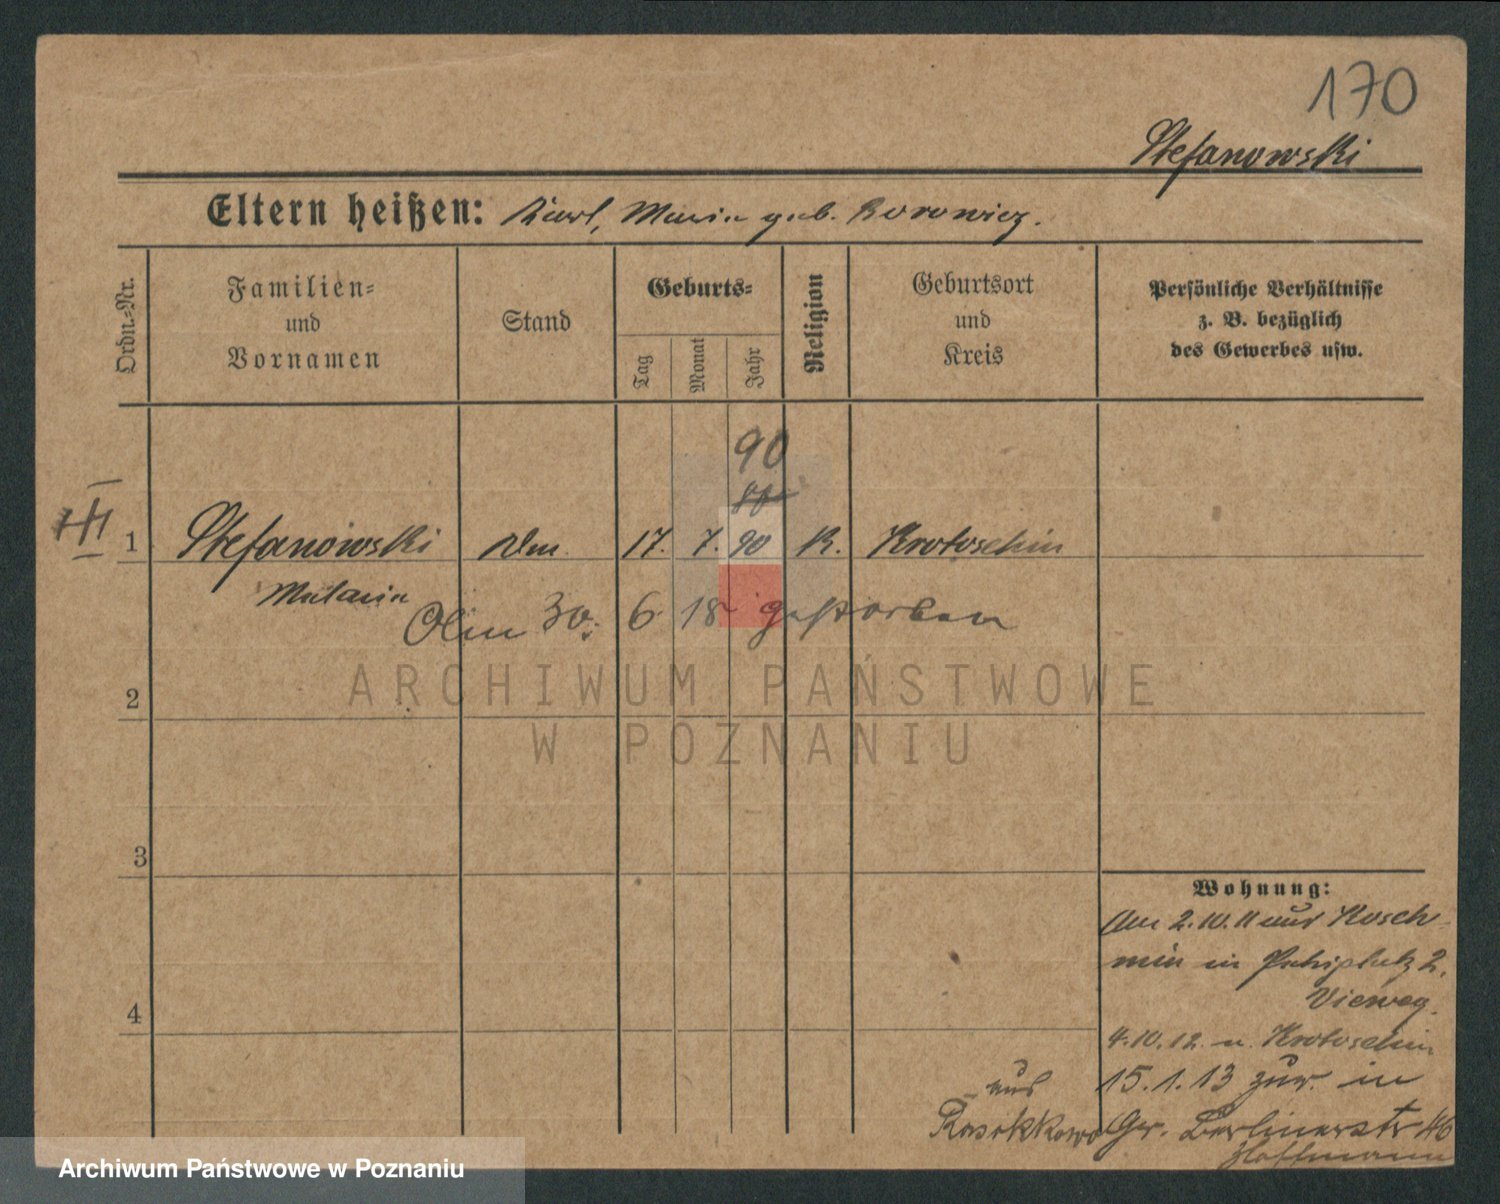 170
Stefanowski
Eltern heißen: Karl, Maria geb. Borowicz.
Ordn.-Nr.
Familien-
und
Vornamen
Stand
Geburts-
Tag
Monat
Jahr
Religion
Geburtsort
und
Kreis
Persönliche Verhältnisse
z. B. bezüglich
des Gewerbes usw.
90
III
1 Stefanowski 17. 7. 90 K. Krotoschin
Am 30. 6 18 gestorben
ARCHIWUM PAŃSTWOWE
W POZNANIU
2
3
4
Wohnung:
Am 2.10.11 aus Kosch-
min in 2.
Vieweg.
4.10.12. n. Krotoschin
aus 15.1.13 zur. in
Gr. Berlinerstr 46
Hoffmann
Archiwum Państwowe w Poznaniu